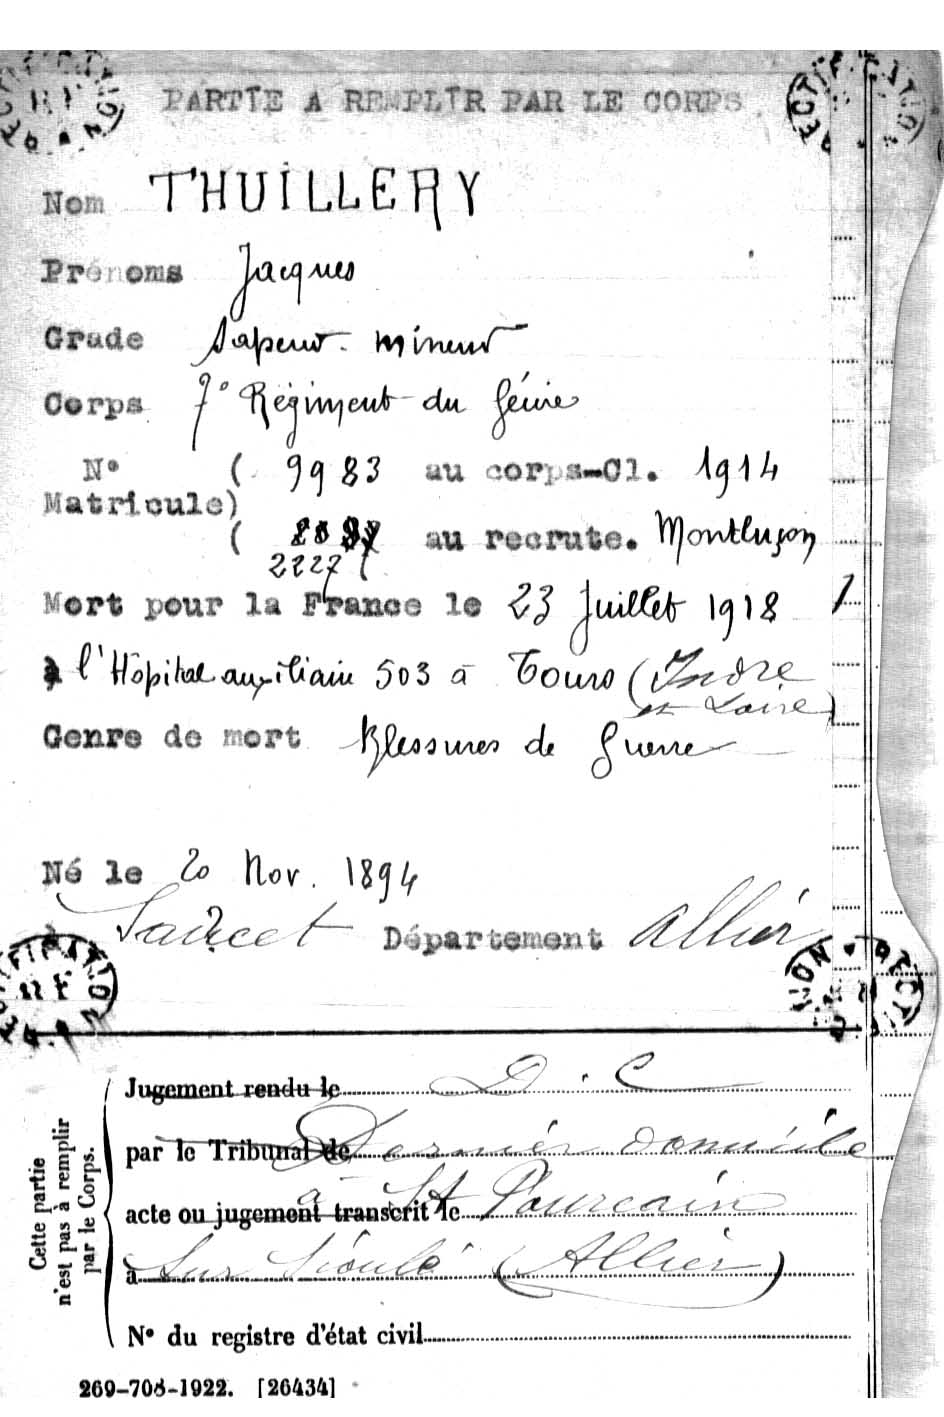 RECTIFICATION
RECTIFICATION
PARTIE A REMPLIR PAR LE CORPS
Nom THUILLERY
Prénoms Jacques
Grade Sapeur-mineur
Corps 7° Régiment du Génie
N° ( 9983 au corps-Cl. 1914
Matricule)
( au recrute. Montluçon
2227
Mort pour la France le 23 Juillet 1918
à l'Hôpital auxiliaire 503 à Tours (Indre
et Loire)
Genre de mort Blessures de Guerre
Né le 20 Nov. 1894
à Saulcet Département Allier
RECTIFICATION
RECTIFICATION
Jugement rendu le D. C
par le Tribunal de Dernier domicile
acte ou jugement transcrit le à St Pourcain
à sur Sioule (Allier)
N° du registre d'état civil
Cette partie
n'est pas à remplir
par le Corps.
269-708-1922. [26434]